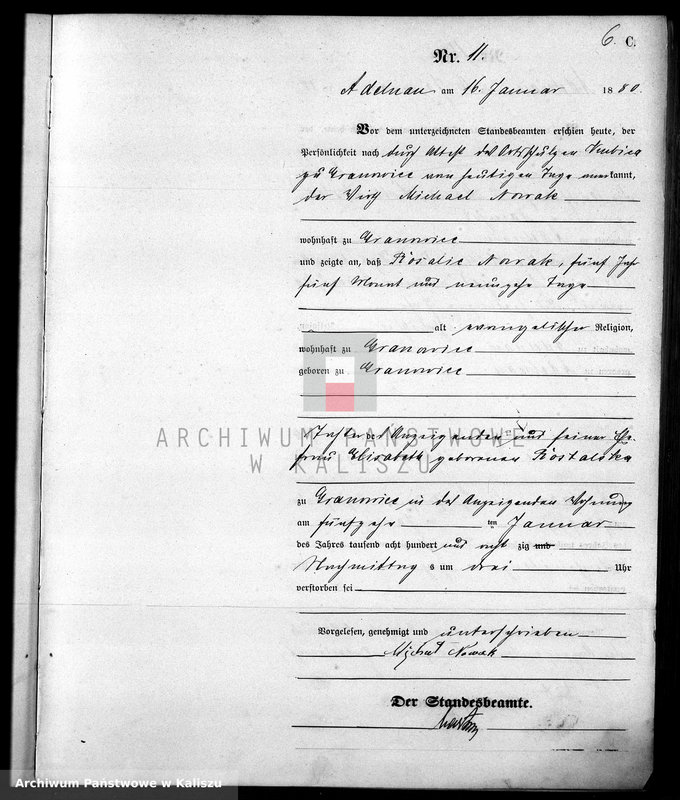 6. C.
Nr. 11.
Adelnau am 16. Januar 1880.
Vor dem unterzeichneten Standesbeamten erschien heute, der
Persönlichkeit nach durch Attest des Ortsschulzen
zu Granowiec vom heutigen Tage anerkannt,
der Wirth Michael Nowak
wohnhaft zu Granowiec
und zeigte an, daß Rosalie Nowak, fünf Jahr
fünf Monat und neunzehn Tage
alt evangelischer Religion,
wohnhaft zu Granowiec
geboren zu Granowiec
Tochter des Anzeigenden und seiner Ehe
frau Elisabeth geborenen
ARCHIWUM PAŃSTWOWE
W KALISZU
zu Granowiec in des Anzeigenden Wohnung
am fünfzehnten Januar
des Jahres tausend acht hundert und achtzig und
Nachmittags um drei Uhr
verstorben sei
Vorgelesen, genehmigt und unterschrieben
Nowak
Der Standesbeamte.
Archiwum Państwowe w Kaliszu